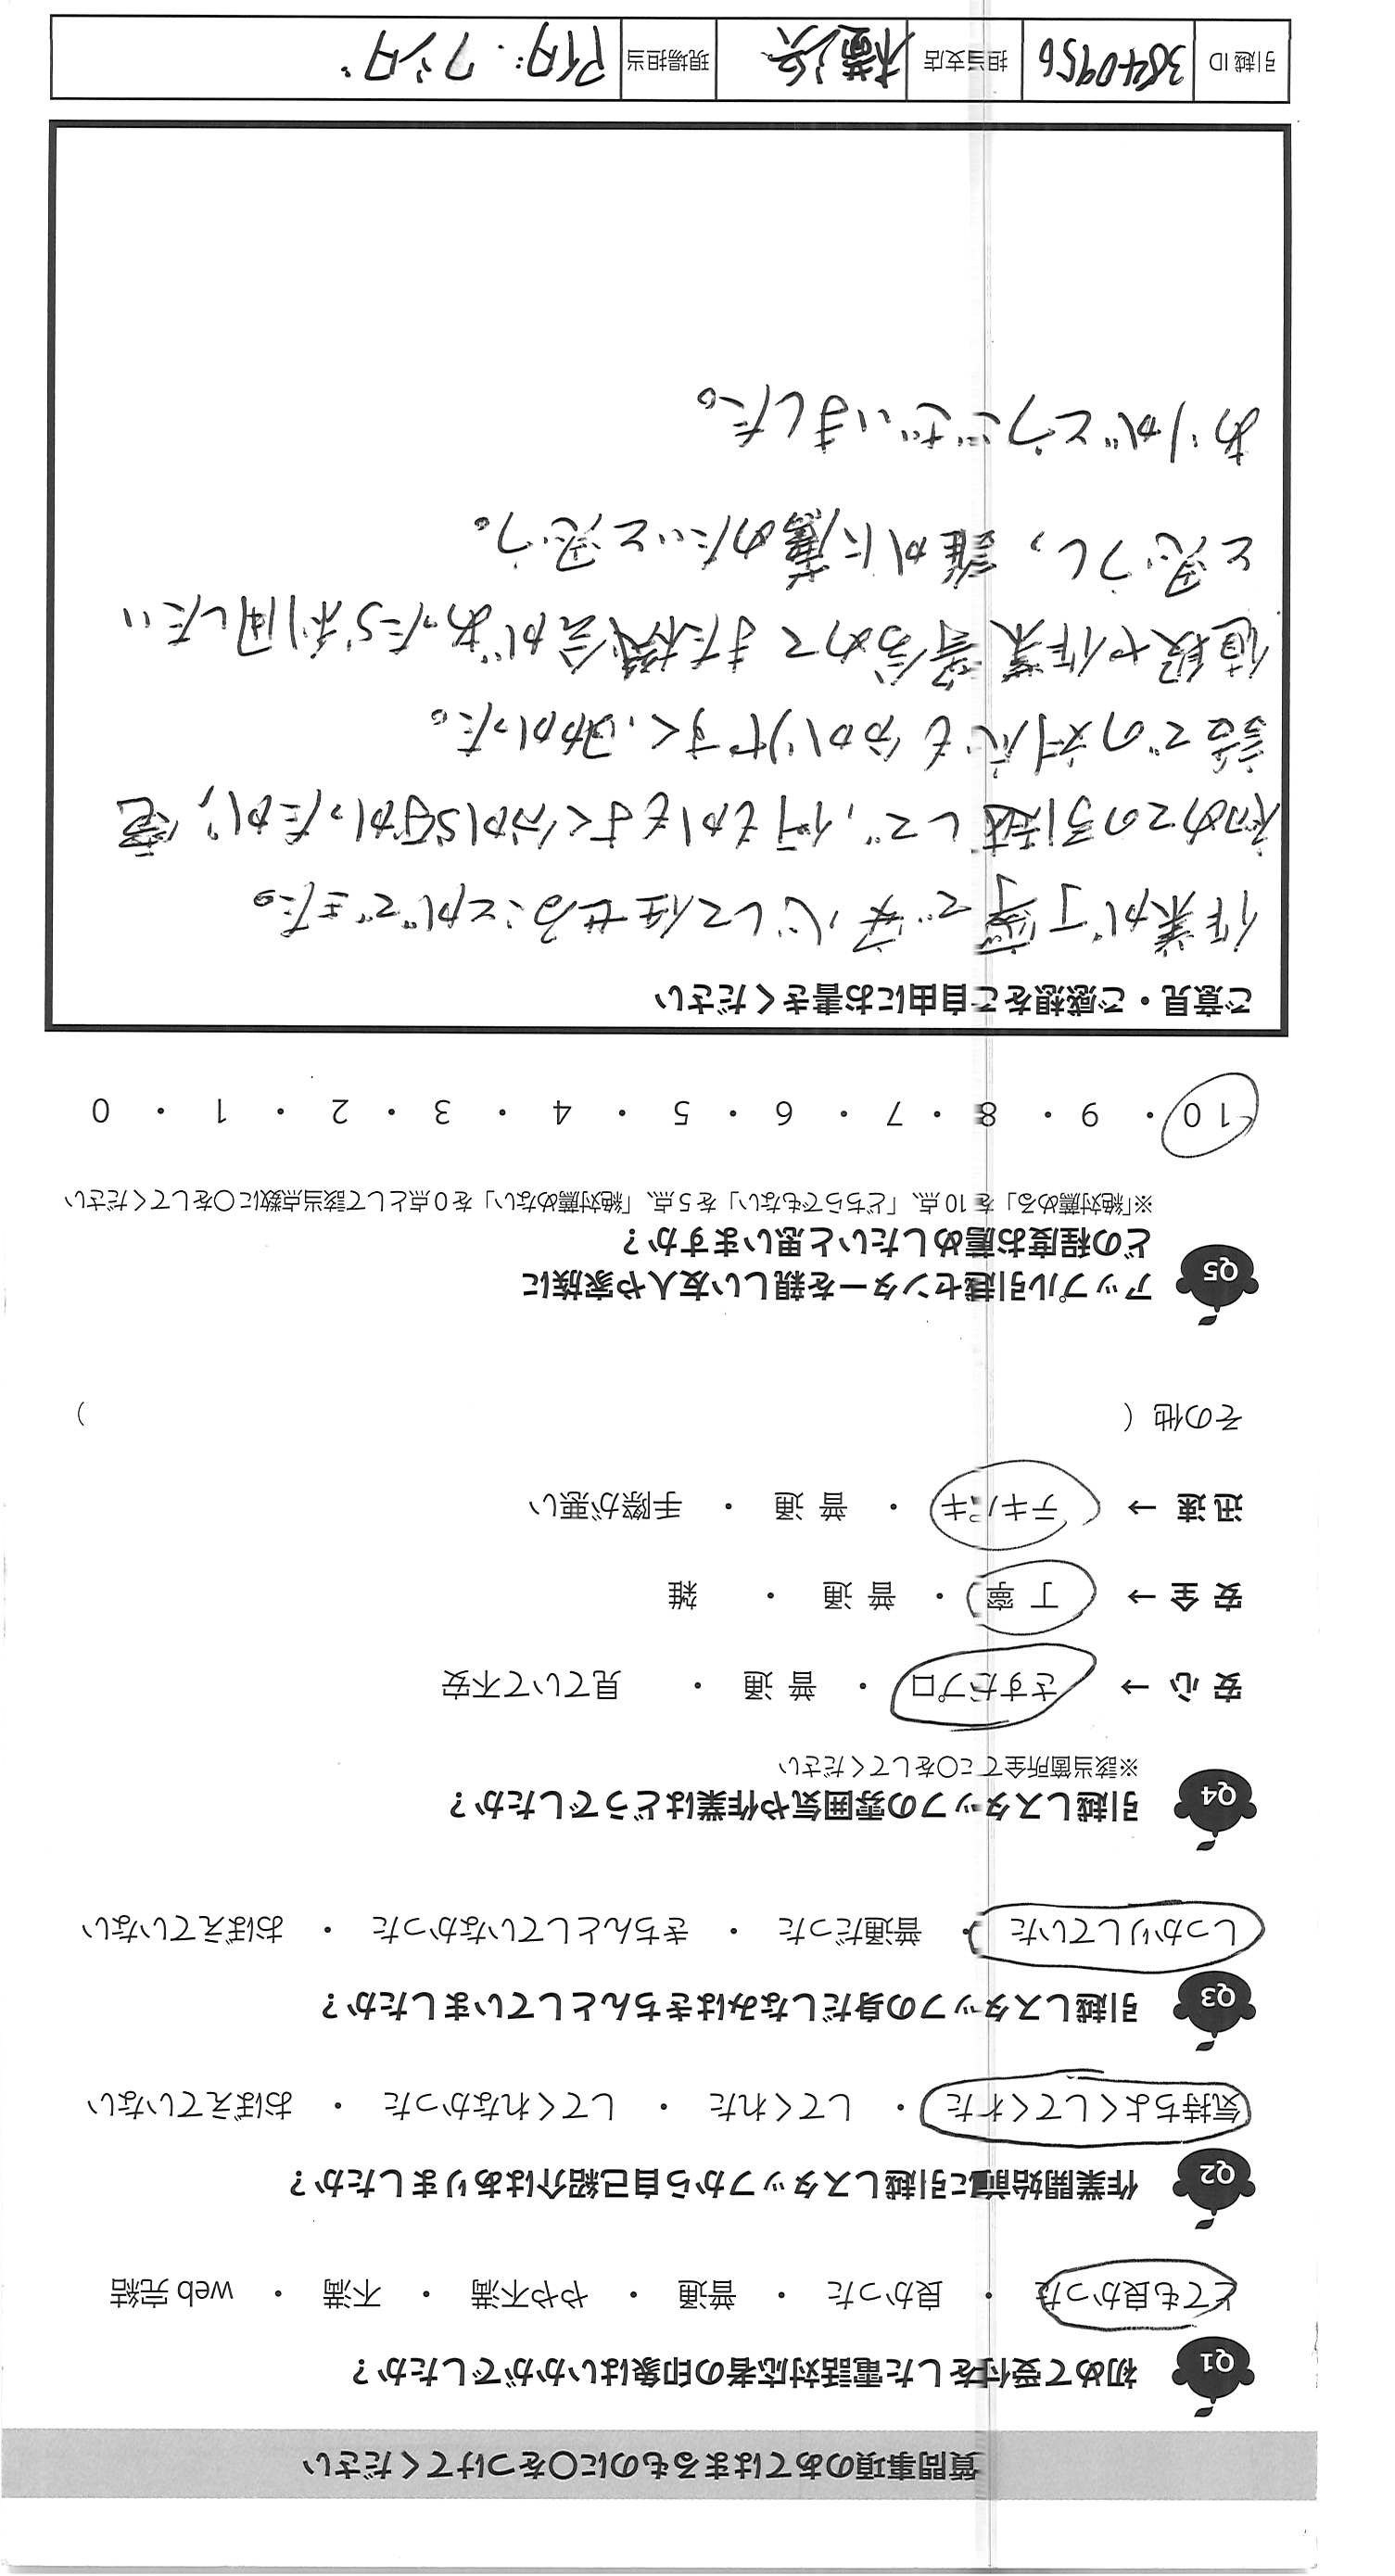 質問事項のあてはまるものに〇をつけてください
Q1 初めて受付をした電話対応者の印象はいかがでしたか？
とても良かった ・ 良かった ・ 普通 ・ やや不満 ・ 不満 ・ web 完結
Q2 作業開始前に引越しスタッフから自己紹介はありましたか？
気持ちよくしてくれた ・ してくれた ・ してくれなかった ・ おぼえていない
Q3 引越しスタッフの身だしなみはきちんとしていましたか？
しっかりしていた ・ 普通だった ・ きちんとしていなかった ・ おぼえていない
Q4 引越しスタッフの雰囲気や作業はどうでしたか？
※該当箇所全てに〇をしてください
安 心 → さすがプロ ・ 普 通 ・ 見ていて不安
安 全 → 丁 寧 ・ 普 通 ・ 雑
迅 速 → テキパキ ・ 普 通 ・ 手際が悪い
その他（ ）
Q5 アップル引越センターを親しい友人や家族に
どの程度お薦めしたいと思いますか？
※「絶対薦める」を 10 点、「どちらでもない」を 5 点、「絶対薦めない」を 0 点として該当点数に〇をしてください
10 ・ 9 ・ 8 ・ 7 ・ 6 ・ 5 ・ 4 ・ 3 ・ 2 ・ 1 ・ 0
ご意見・ご感想をご自由にお書きください
作業が丁寧で安心して任せることができた。
初めての引越しで、何もかもよく分からなかったが、電
話での対応も分かりやすく、助かった。
値段や作業等含めてまた機会があったら利用したい
と思うし、誰かに薦めたいと思う。
ありがとうございました。
引越 ID 3840956 担当支店 横浜 現場担当